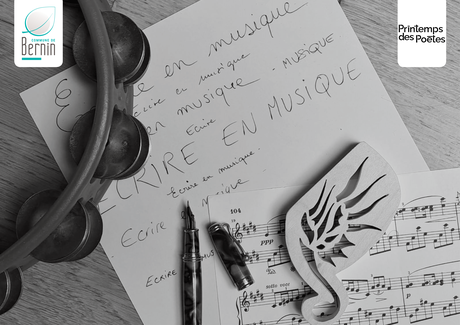 COMMUNE DE
Bernin
Printemps
des Poètes
Ecrire en musique
Ecrire en musique
en musique - MUSIQUE
Ecrire
ECRIRE EN MUSIQUE
Ecrire en musique.
musique
Ecrire
ECRIRE
104
ppp